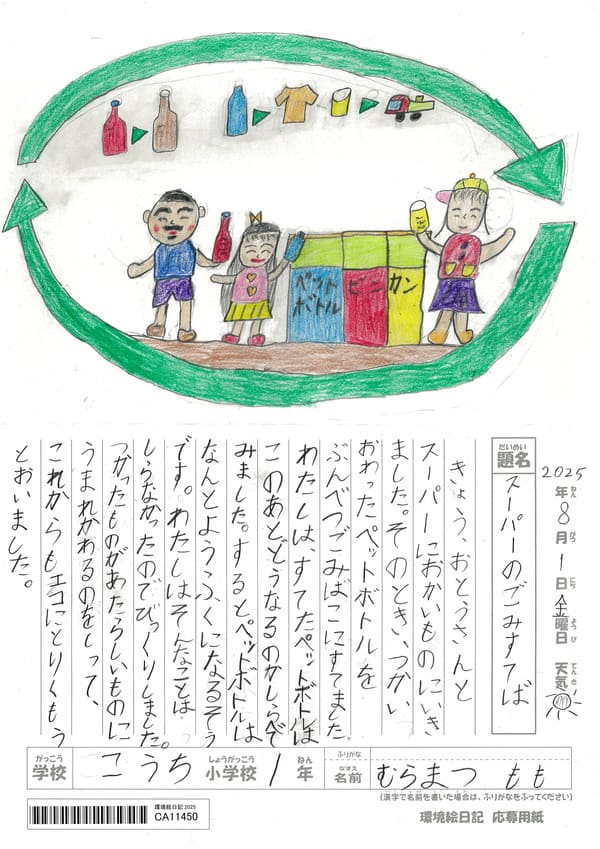 ペットボトル
ビン
カン
2025年ねん8月がつ1日にち金曜日ようび 天気てんき
だいめい
題名
スーパーのごみすてば
きょう、おとうさんと
スーパーにおかいものにいき
ました。そのとき、つかい
おわったペットボトルを
ぶんべつごみばこにすてました。
わたしは、すてたペットボトルは
このあとどうなるのかしらべて
みました。するとペットボトルは
なんとようふくになるそう
です。わたしはそんなことは
しらなかったのでびっくりしました。
つかったものがあたらしいものに
うまれかわるのをしって、
これからもエコにとりくもう
とおいました。
がっこう
学校 こうち 小学校しょうがっこう 1年ねん
ふりがな
名前なまえ むらまつ もも
(漢字で名前を書いた場合は、ふりがなをふってください)
環境絵日記 2025
CA11450
環境絵日記 応募用紙